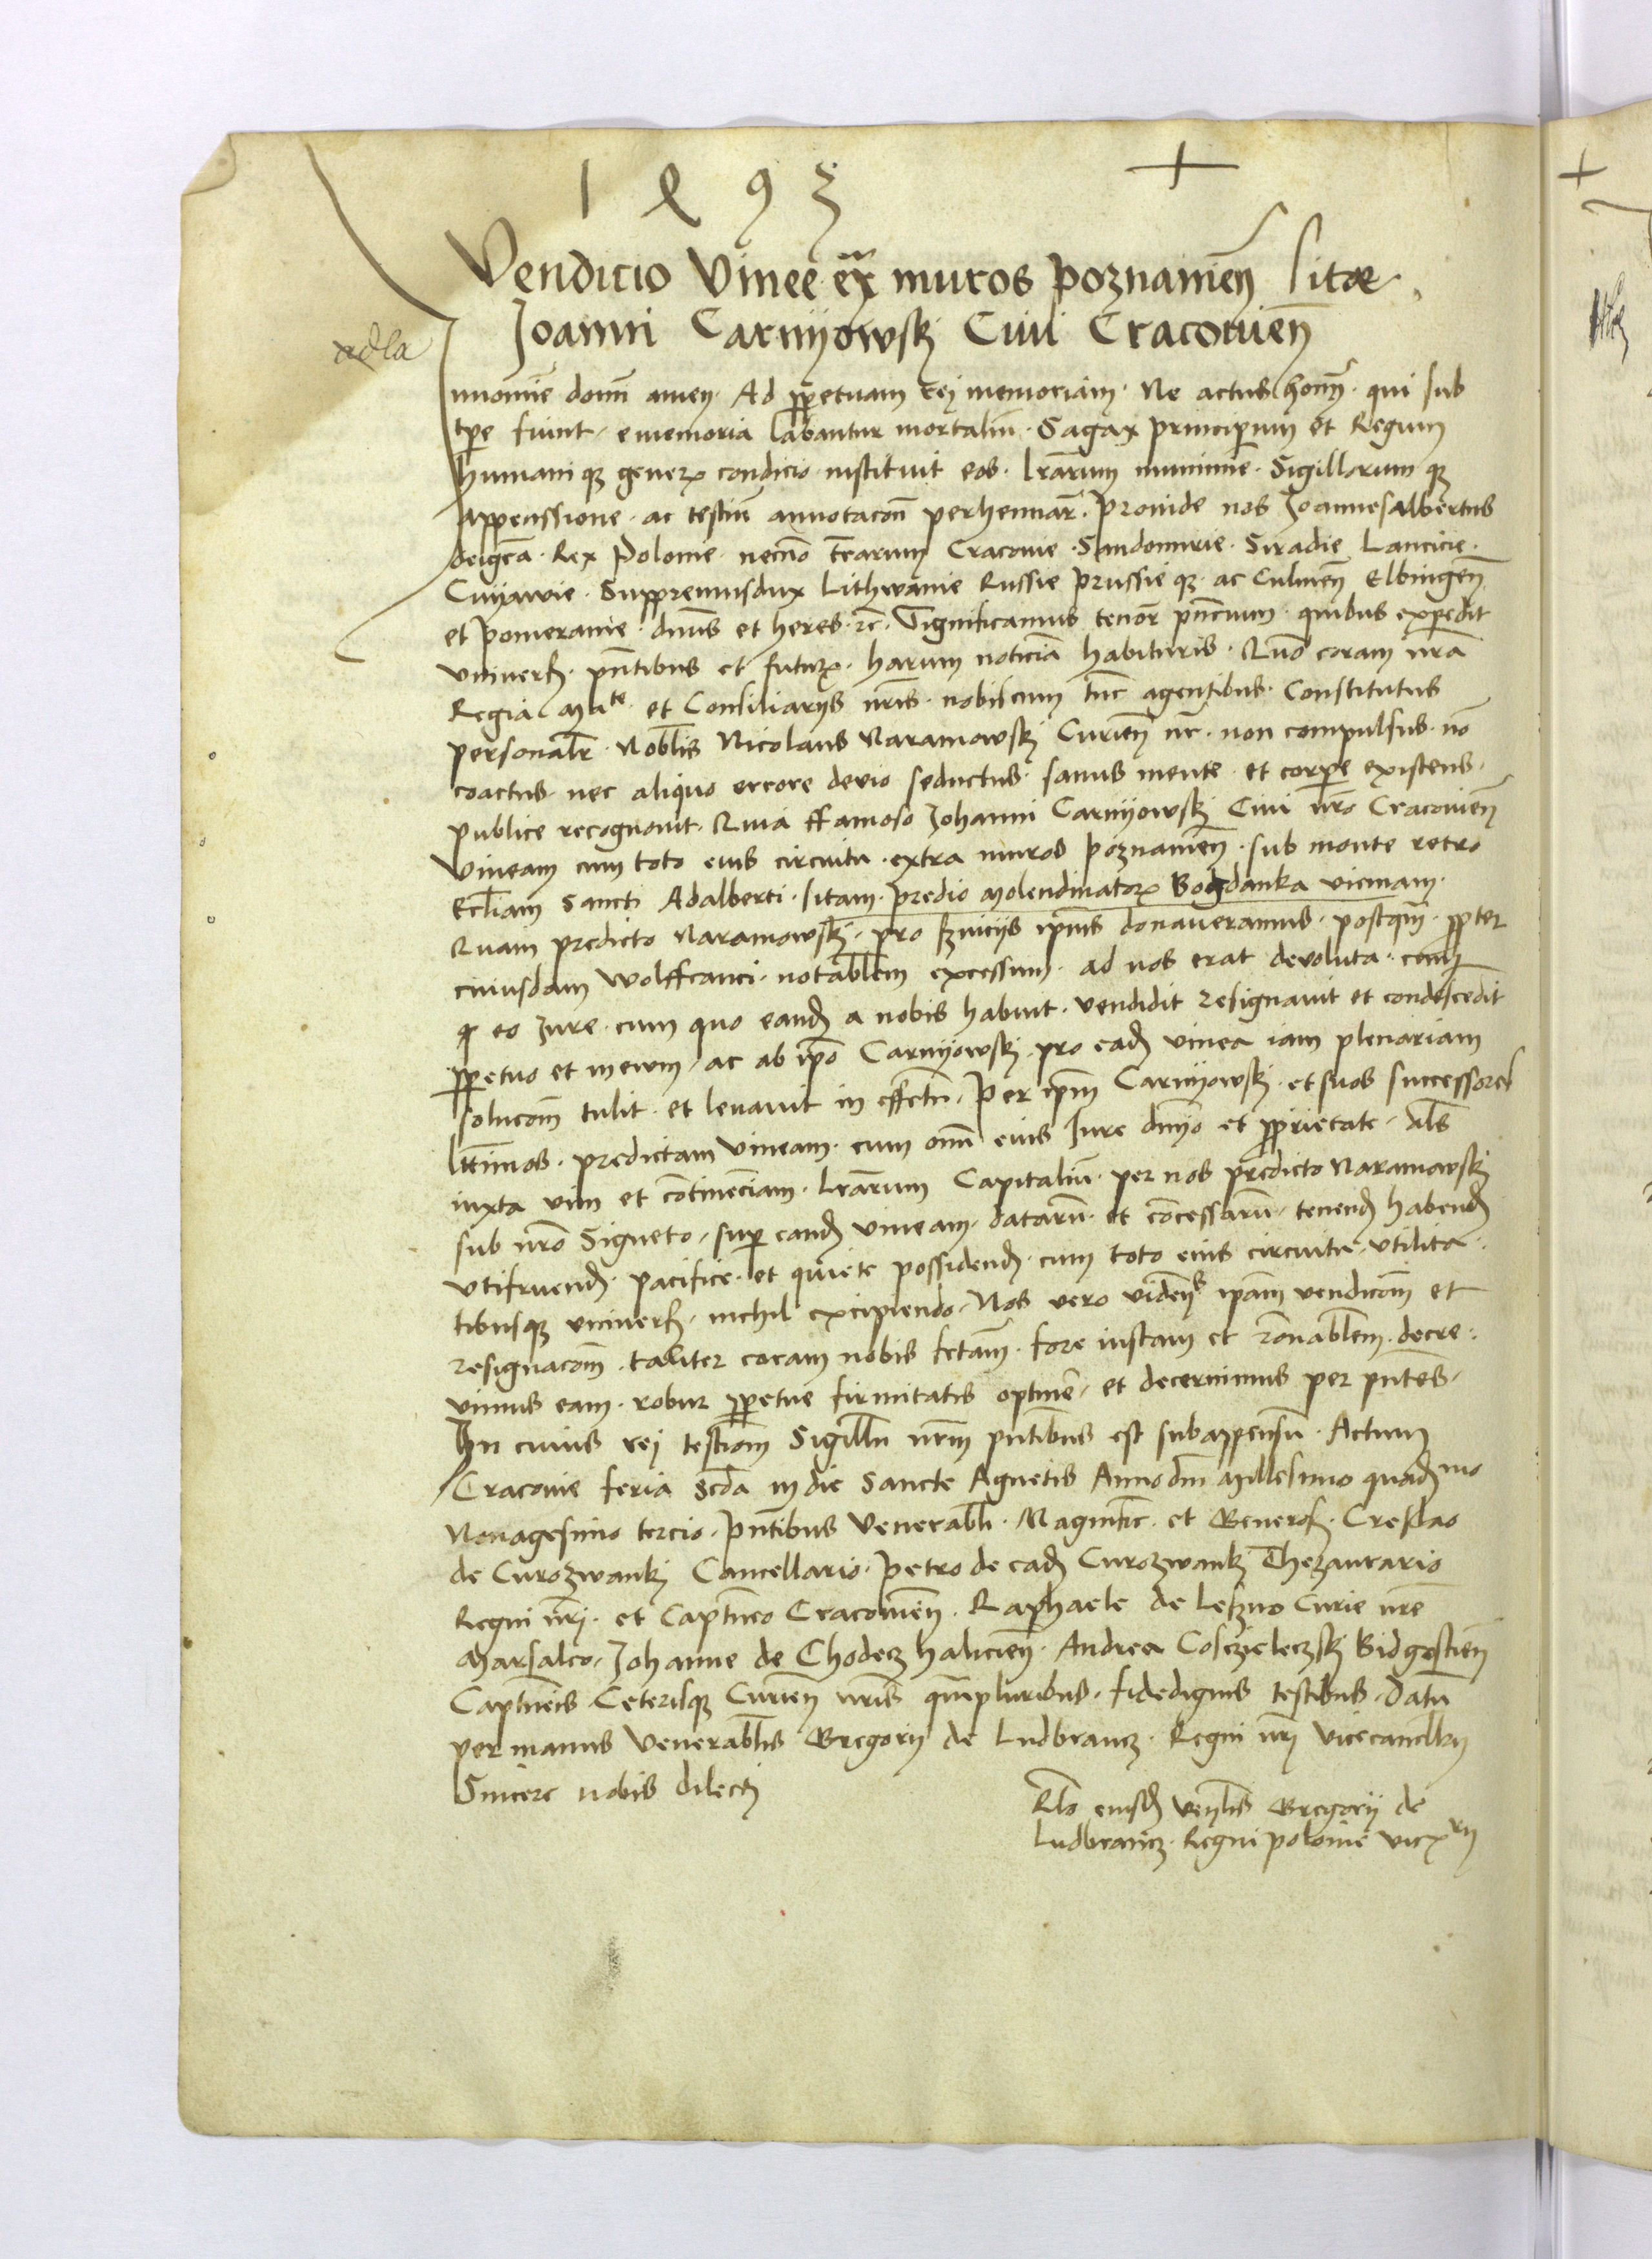 1493 +
Vendicio Vinee ext̃ muros Poznanien̄ sitae
Joanni Carnijowskj Civi Cracovien̄
In nomine dominj amen. Ad ꝑpetuam rej memoriam. Ne actus hominū. qui sub
tpe fiunt. ememoria labantur mortaliū. Sagax principum et Regum
humani qꝫ generꝫ condicio instituit eos. lrārum munimine. Sigillorum qꝫ
appenssione. ac testiū annotacon̄ perhennar̄. Proinde nos Joannesalbertus
deigrā. Rex Polonie. necnō trārum Cracovie. Sandomirie. Siradie Lancicie.
Cuijavie. Suppremusdux Lithwanie Russie Prussie qꝫ. ac Culmen̄ Elbingen̄
et Pomeranie. dn̄us et heres. zc̄. Significamus tenor̄ pn̄cium. quibus expedit
vniversꝭ. pn̄tibus et futurꝫ. harum noticiā habituris. Quō coram nrā
Regia Mate. et Consiliarijs nrīs. nobiscum tūc agentibus. Constitutus
personalr̄. Nobilis Nicolaus Naramowskj Curien̄ nr̄. non compulsus. nō
coactus. nec aliquo errore devio seductus. sanus mente. et corpe existens.
publice recognouit. Quia ffamoso Johanni Carnijowskj Civi nrō Cracovien̄
Vineam cum toto eius circuitu. extra muros Poznanien̄. sub monte retro
Eccl̄iam Sancti Adalberti. sitam. predio Molendinatorꝫ Bogdanka vicinam.
Quam predicto Naramowskj. pro ẜuicijs ip̄ius donaueramus. postqꝫ. ꝓpter
cuiusdam Wolffranci. notabilem excessum. ad nos erat devoluta.
eo Jure. cum quo eandꝫ a nobis habuit. vendidit resignauit et condescēdit
ꝑpetuo et in ewm. ac ab ip̄o Carnijowskj. pro eadꝫ vinea iam plenariam
solucōm tulit. et levavit in effectu. Per ip̄m Carnijowskj. et suos successores
lttīmos. predictam vineam. cum omī eius Jure dn̄io et ꝓprietate. al̄s
iuxta vim et continenciam. lrārum Capitaliū. per nos predicto Naramowskj
sub nrō Signeto. super eandꝫ vineam. datarū. et concessarū. tenendꝫ habendꝫ
vtifruendꝫ. pacifice. et quiete possidendꝫ. cum toto eius circuitu. vtilita-
tibusqꝫ vniversꝭ. nichil excipiendo. Nos vero viden̄s ip̄am vendicōm et
resignacōm. taliter coram nobis fctām. fore iustam et rōnabilem. decre-
vimus eam. robur ꝑpetue firmitatis optiner̄. et decernimus per pn̄tes.
In cuius rej testiōm Sigillū nrm̄ pn̄tibus est subappensū. Actum
Cracovie feria scdā in die Sancte Agnetis Anno dn̄i Millesimo quadꝫmo
Nonagesimo tercio. pn̄tibus Venerabil̄. Magnific̄. et Generosꝭ. Creslao
de Curozwankj Cancellario. Petro de eadꝫ Curozwankj Thezaurario
Regni nrj̄. et Captn̄eo Cracovien̄. Raphaele de Leszno Curie nrē
Marsalco. Johanne de Chodecz halicien̄. Andrea Cosczieleczskj Bidgostien̄
Captn̄eis. Ceterisqꝫ Curien̄ nrīs qꝫpluribus. fidedignis testibus. Datū
per manus Venerabilis Gregorij de Ludbrancz. Regni nrj̄ vicecancellarij
Sincere nobis dilectj
Rlō eiusdꝫ ven̄lis Gregorij de
Ludbrancz. Regni polonie vicx rij